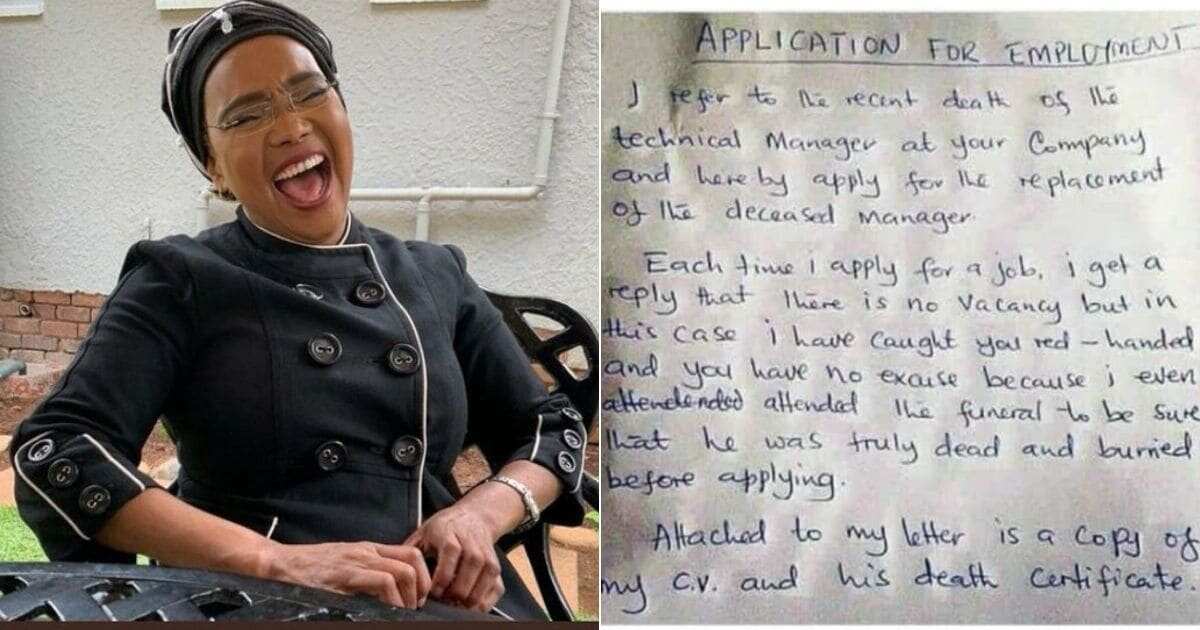 APPLICATION FOR EMPLOYMENT
I refer to the recent death of the
technical Manager at your Company
and hereby apply for the replacement
of the deceased manager
Each time i apply for a job, i get a
reply that there is no Vacancy but in
this case i have caught you red-handed
and you have no excuse because i even
attended the funeral to be sure
that he was truly dead and burried
before applying.
Attached to my letter is a copy of
my c.v. and his death certificate.